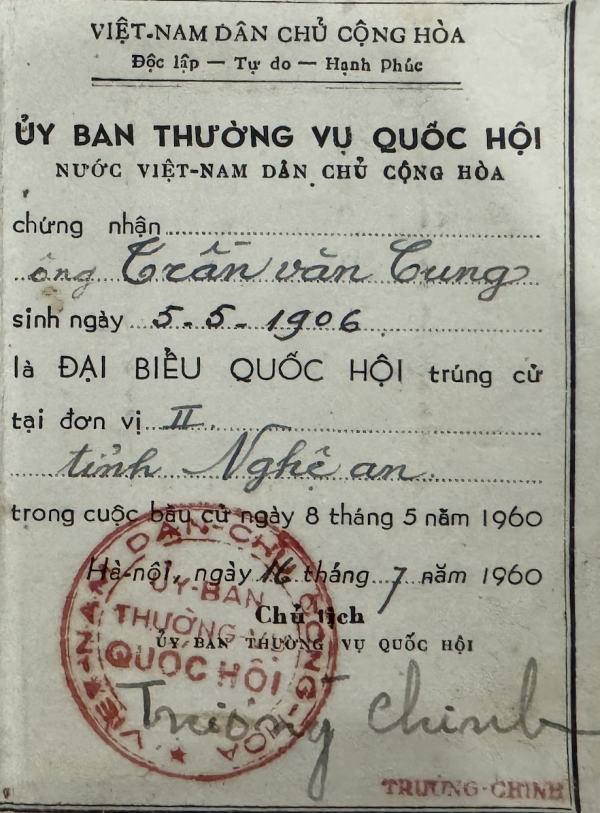 VIỆT-NAM DÂN CHỦ CỘNG HÒA
Độc lập — Tự do — Hạnh Phúc
ỦY BAN THƯỜNG VỤ QUỐC HỘI
NƯỚC VIỆT-NAM DÂN CHỦ CỘNG HÒA
chứng nhận
ông Trần văn Cung
sinh ngày 5-5-1906
là ĐẠI BIỂU QUỐC HỘI trúng cử
tại đơn vị II
tỉnh Nghệ an
trong cuộc bầu cử ngày 8 tháng 5 năm 1960
Hà-nội, ngày 16 tháng 7 năm 1960
Chủ tịch
ỦY BAN THƯỜNG VỤ QUỐC HỘI
VIỆT-NAM DÂN-CHỦ CỘNG-HÒA
ỦY-BAN
THƯỜNG-VỤ
QUỐC HỘI
Trường Chinh
TRƯỜNG-CHINH